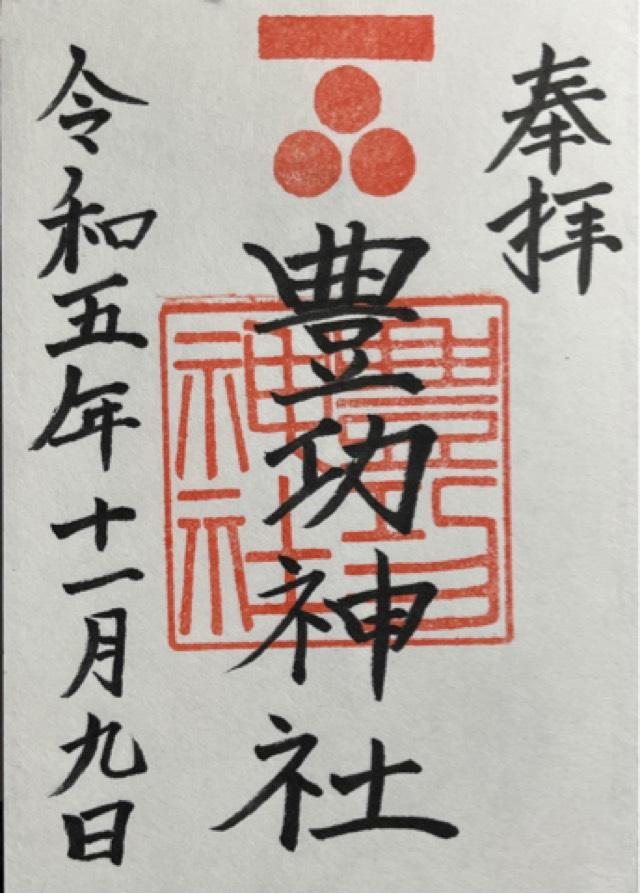 奉拝
豊功神社
豊功神社
令和五年十一月九日